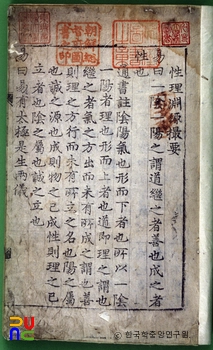 性理淵源撮要
性也
易曰一陰一陽之謂道繼之者善也成之者
通書註陰陽氣也形而下者也所以一陰
一陽者理也形而上者也道即理之謂也
繼之者氣之方出而未有所成之謂也善
則理之方行而未有所立之名也陽之屬
也誠之源也成則物之已成性則理之已
立者也陰之屬也誠之立也
易曰易有太極是生兩儀
한국학중앙연구원